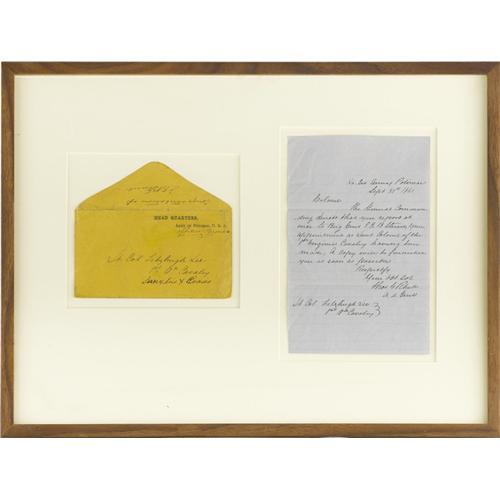 HEAD QUARTERS,
Army of Potomac, C. S. A.
Lt Col Fitzhugh Lee
1st Va Cavalry
Sangsters X Roads
Hd. Qrs Army Potomac
Sept 30th 1861
Colonel
The General Command
ing directs that you report at
once to Brig Genl J. E. B. Stuart, your
appointment as Lieut Colonel of the
1st Virginia Cavalry having been
made. A copy will be furnished
you as soon as
Respectfully
Your obt Svt
A. A. Genl
Lt Col Fitzhugh Lee
1st Va Cavalry